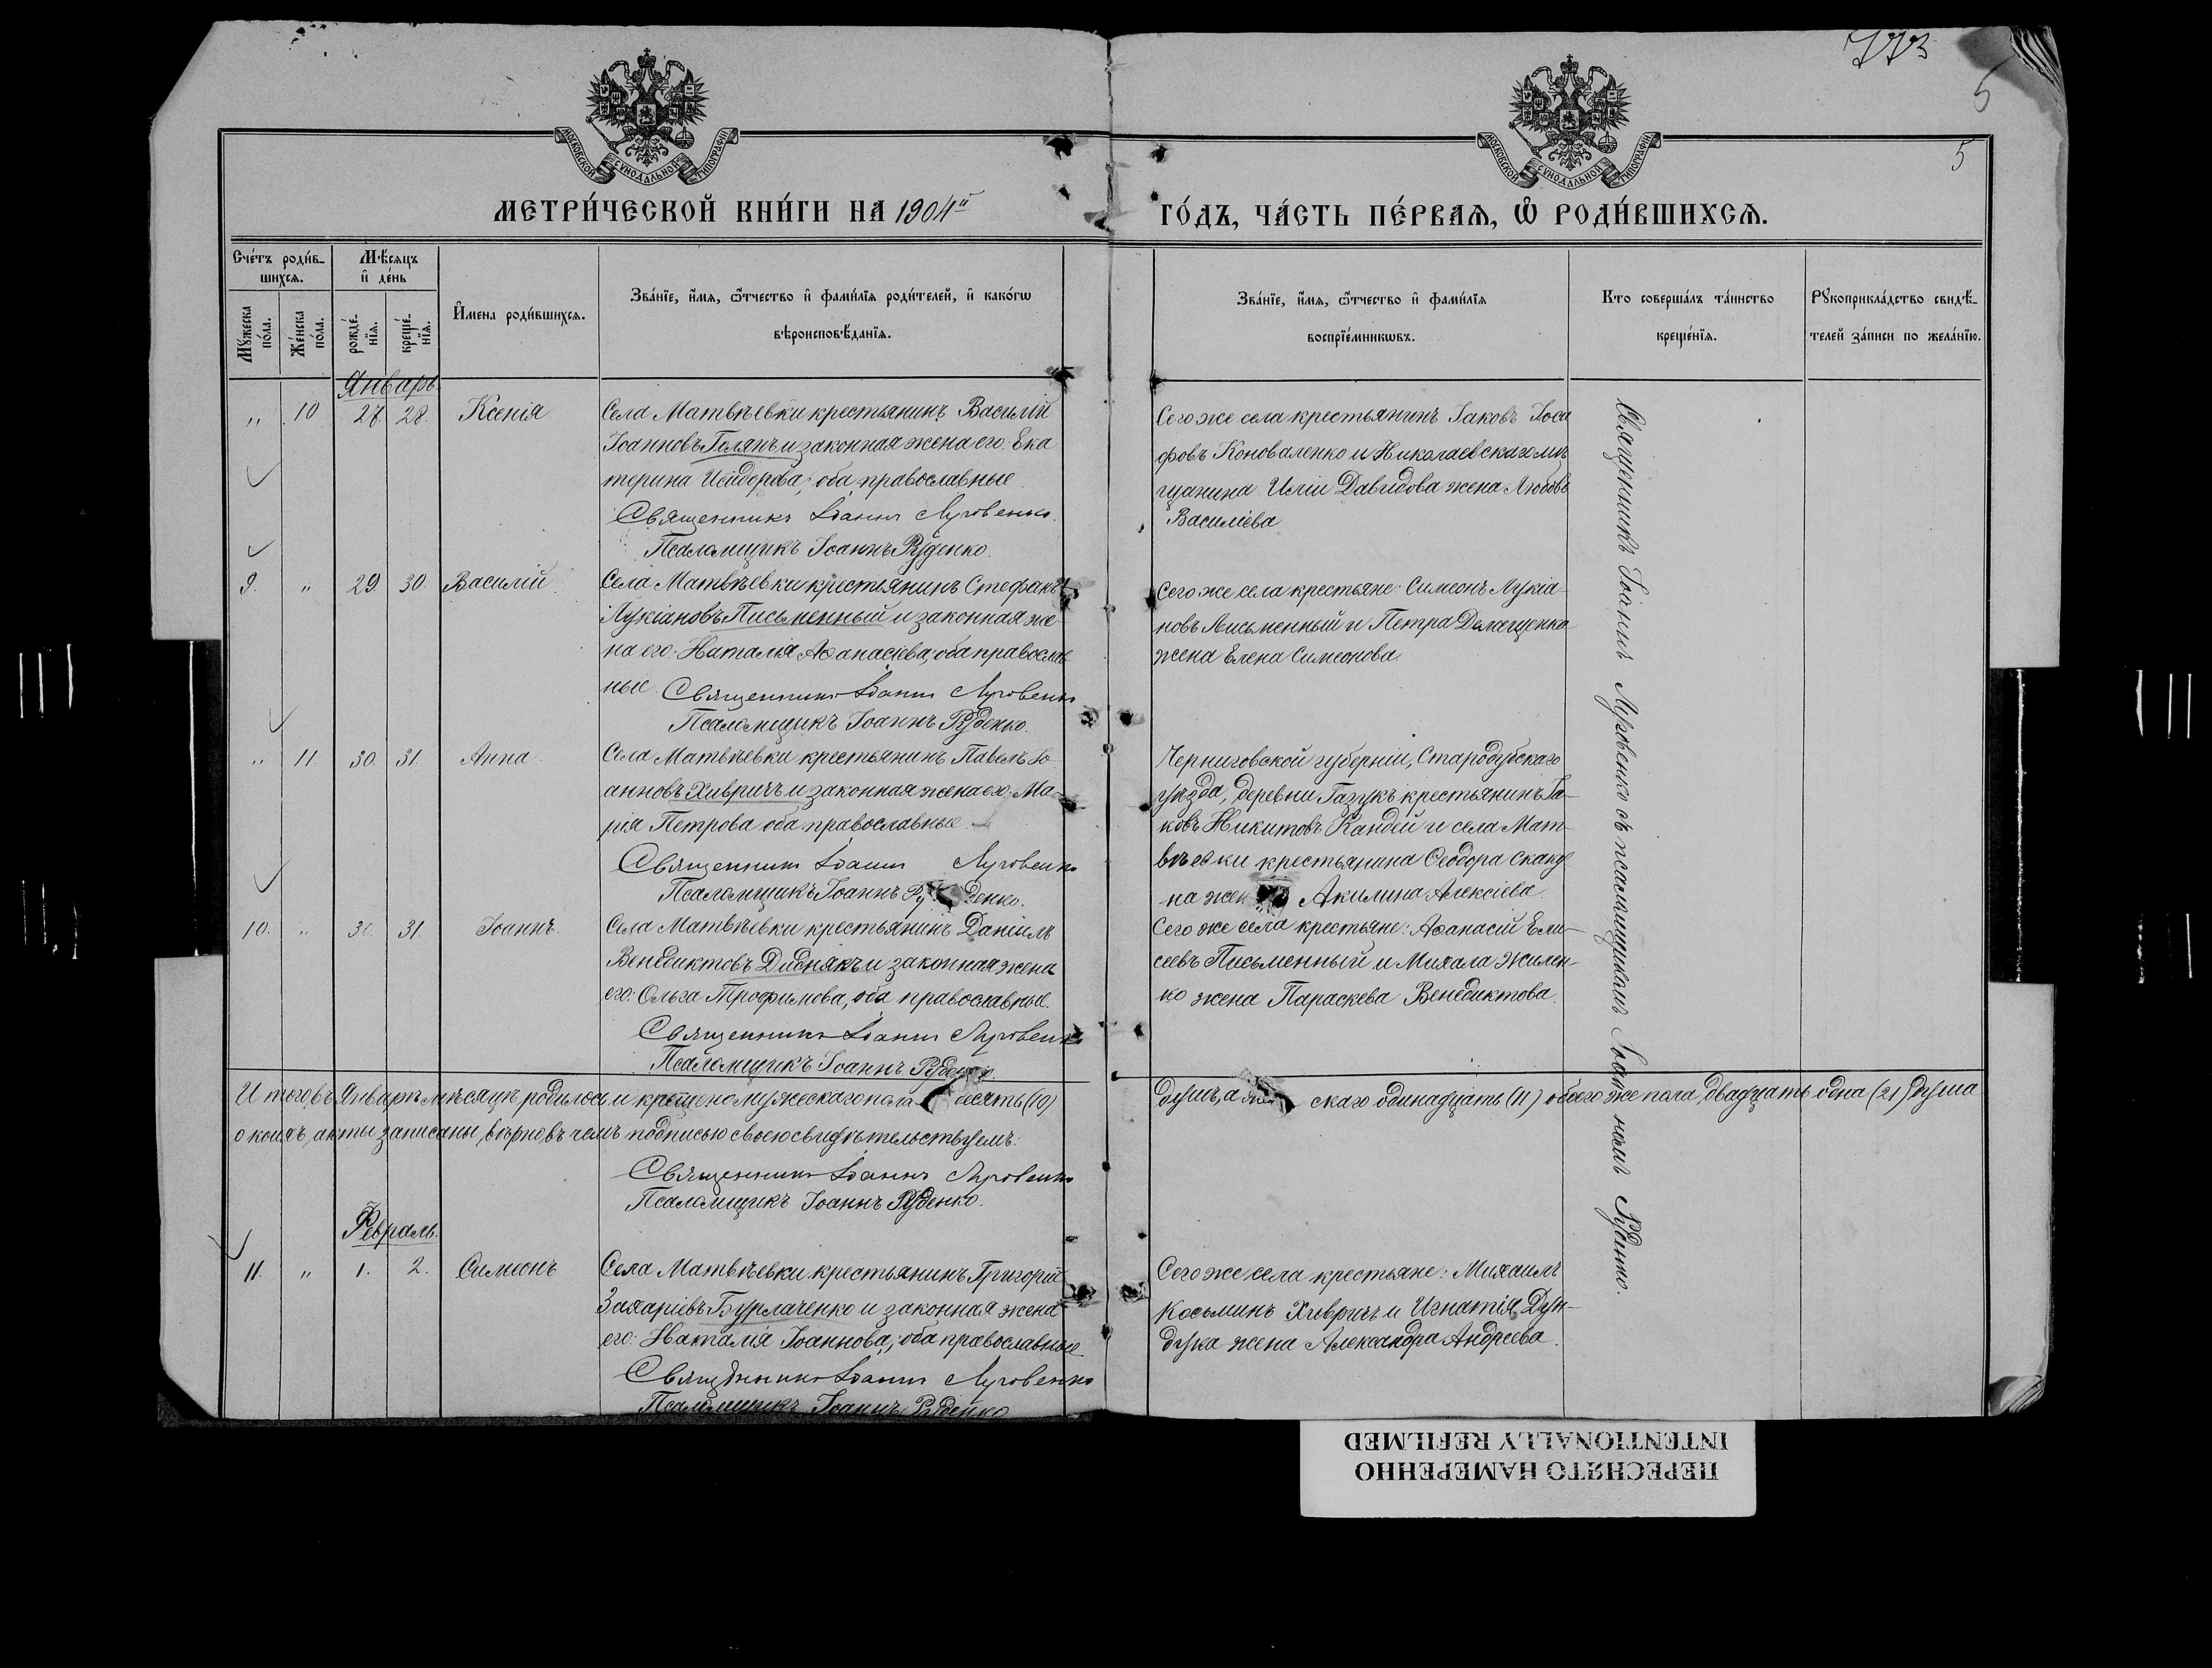 773
5
5
МОСКОВСКОЙ СѴНОДАЛЬНОЙ ТИПОГРАФІИ
МОСКОВСКОЙ СѴНОДАЛЬНОЙ ТИПОГРАФІИ
МЕТРИ́ЧЕСКОЙ КНИ́ГИ НА 1904й
ГО́ДЪ, ЧА́СТЬ ПЕ́РВАѦ, Ѡ҆ РОДИ́ВШИХСѦ.
Сче́тъ роди́в-
шихсѧ.
Мѣ́сѧцъ
и҆ де́нь
Мꙋ́жеска
по́ла.
Же́нска
по́ла.
рожде́-
нїѧ.
креще́-
нїѧ.
И҆мена роди́вшихсѧ.
Зва́нїе, и҆́мѧ, ѻ҆́тчество и҆ фами́лїѧ роди́телей, и҆ како́гѡ
вѣроисповѣ́данїѧ.
Зва́нїе, и҆́мѧ, ѻ҆́тчество и҆ фами́лїѧ
воспрїе́мникѡвъ.
Кто соверша́лъ та́инство
креще́нїѧ.
Рꙋкоприкла́дство свидѣ́-
телей за́писи по жела́нїю.
Январь
" 10 27. 28. Ксенія
Села Матвѣевки крестьянинъ Василій
Іоанновъ Гелянъ и законная жена его: Ека
терина Исидорова, оба православные
Священникъ Іоаннъ Луговенко.
Псаломщикъ Іоаннъ Руденко.
Сего же села крестьянинъ Іаковъ Іоси
фовъ Коноваленко и Николаевскаго мѣ
щанина Иліи Давидова жена Любовь
Василіева
9. " 29. 30. Василій
Села Матвѣевки крестьянинъ Стефанъ
Лукіановъ Письменный и законная же-
на его: Наталія Аѳанасіева, оба православ
ные. Священникъ Іоаннъ Луговенко
Псаломщикъ Іоаннъ Руденко.
Сего же села крестьяне: Симеонъ Лукіа-
новъ Письменный и Петра
жена Елена Симеонова.
" 11. 30. 31. Анна
Села Матвѣевки крестьянинъ Павелъ Іо
анновъ Хивричъ и законная жена его: Ма-
рія Петрова оба православные
Священникъ Іоаннъ Луговенко
Псаломщикъ Іоаннъ Руденко.
Черниговской губерніи, Стародубскаго
уѣзда, деревни Газукъ крестьянинъ Іа-
ковъ Никитовъ Кандей и села Мат-
вѣевки крестьянина Ѳеодора Скаку
на жен Акилина Алексіева.
10. " 30. 31. Іоаннъ.
Села Матвѣевки крестьянинъ Даніилъ
Венедиктовъ Дибнякъ и законная жена
его: Ольга Трофимова, оба православные.
Священникъ Іоаннъ Луговенко
Псаломщикъ Іоаннъ Руденко.
Сего же села крестьяне: Аѳанасій Ели-
сеевъ Письменный и Михаила Жилен-
ко жена Параскева Венедиктова.
Итого въ Январѣ мѣсяцѣ родилось и крещено мужескаго пола десять (10)
душъ, а женскаго одинадцать (11) обоего же пола двадцать одна (21) душа
о коихъ акты записаны вѣрно въ чемъ подписью своею свидѣтельствуемъ:
Священникъ Іоаннъ Луговенко
Псаломщикъ Іоаннъ Руденко.
Февраль.
11. " 1. 2. Симеонъ
Села Матвѣевки крестьянинъ Григорій
Захаріевъ Бурлаченко и законная жена
его: Наталія Іоаннова, оба православные
Священникъ Іоаннъ Луговенко
Псаломщикъ Іоаннъ Руденко
Сего же села крестьяне: Михаилъ
Косьминъ Хивричъ и Игнатія Дун-
дука жена Александра Андреева.
Священникъ Іоаннъ Луговенко съ псаломщикомъ Іоанномъ Руденко.
ПЕРЕСНЯТО НАМЕРЕННО
INTENTIONALLY REFILMED